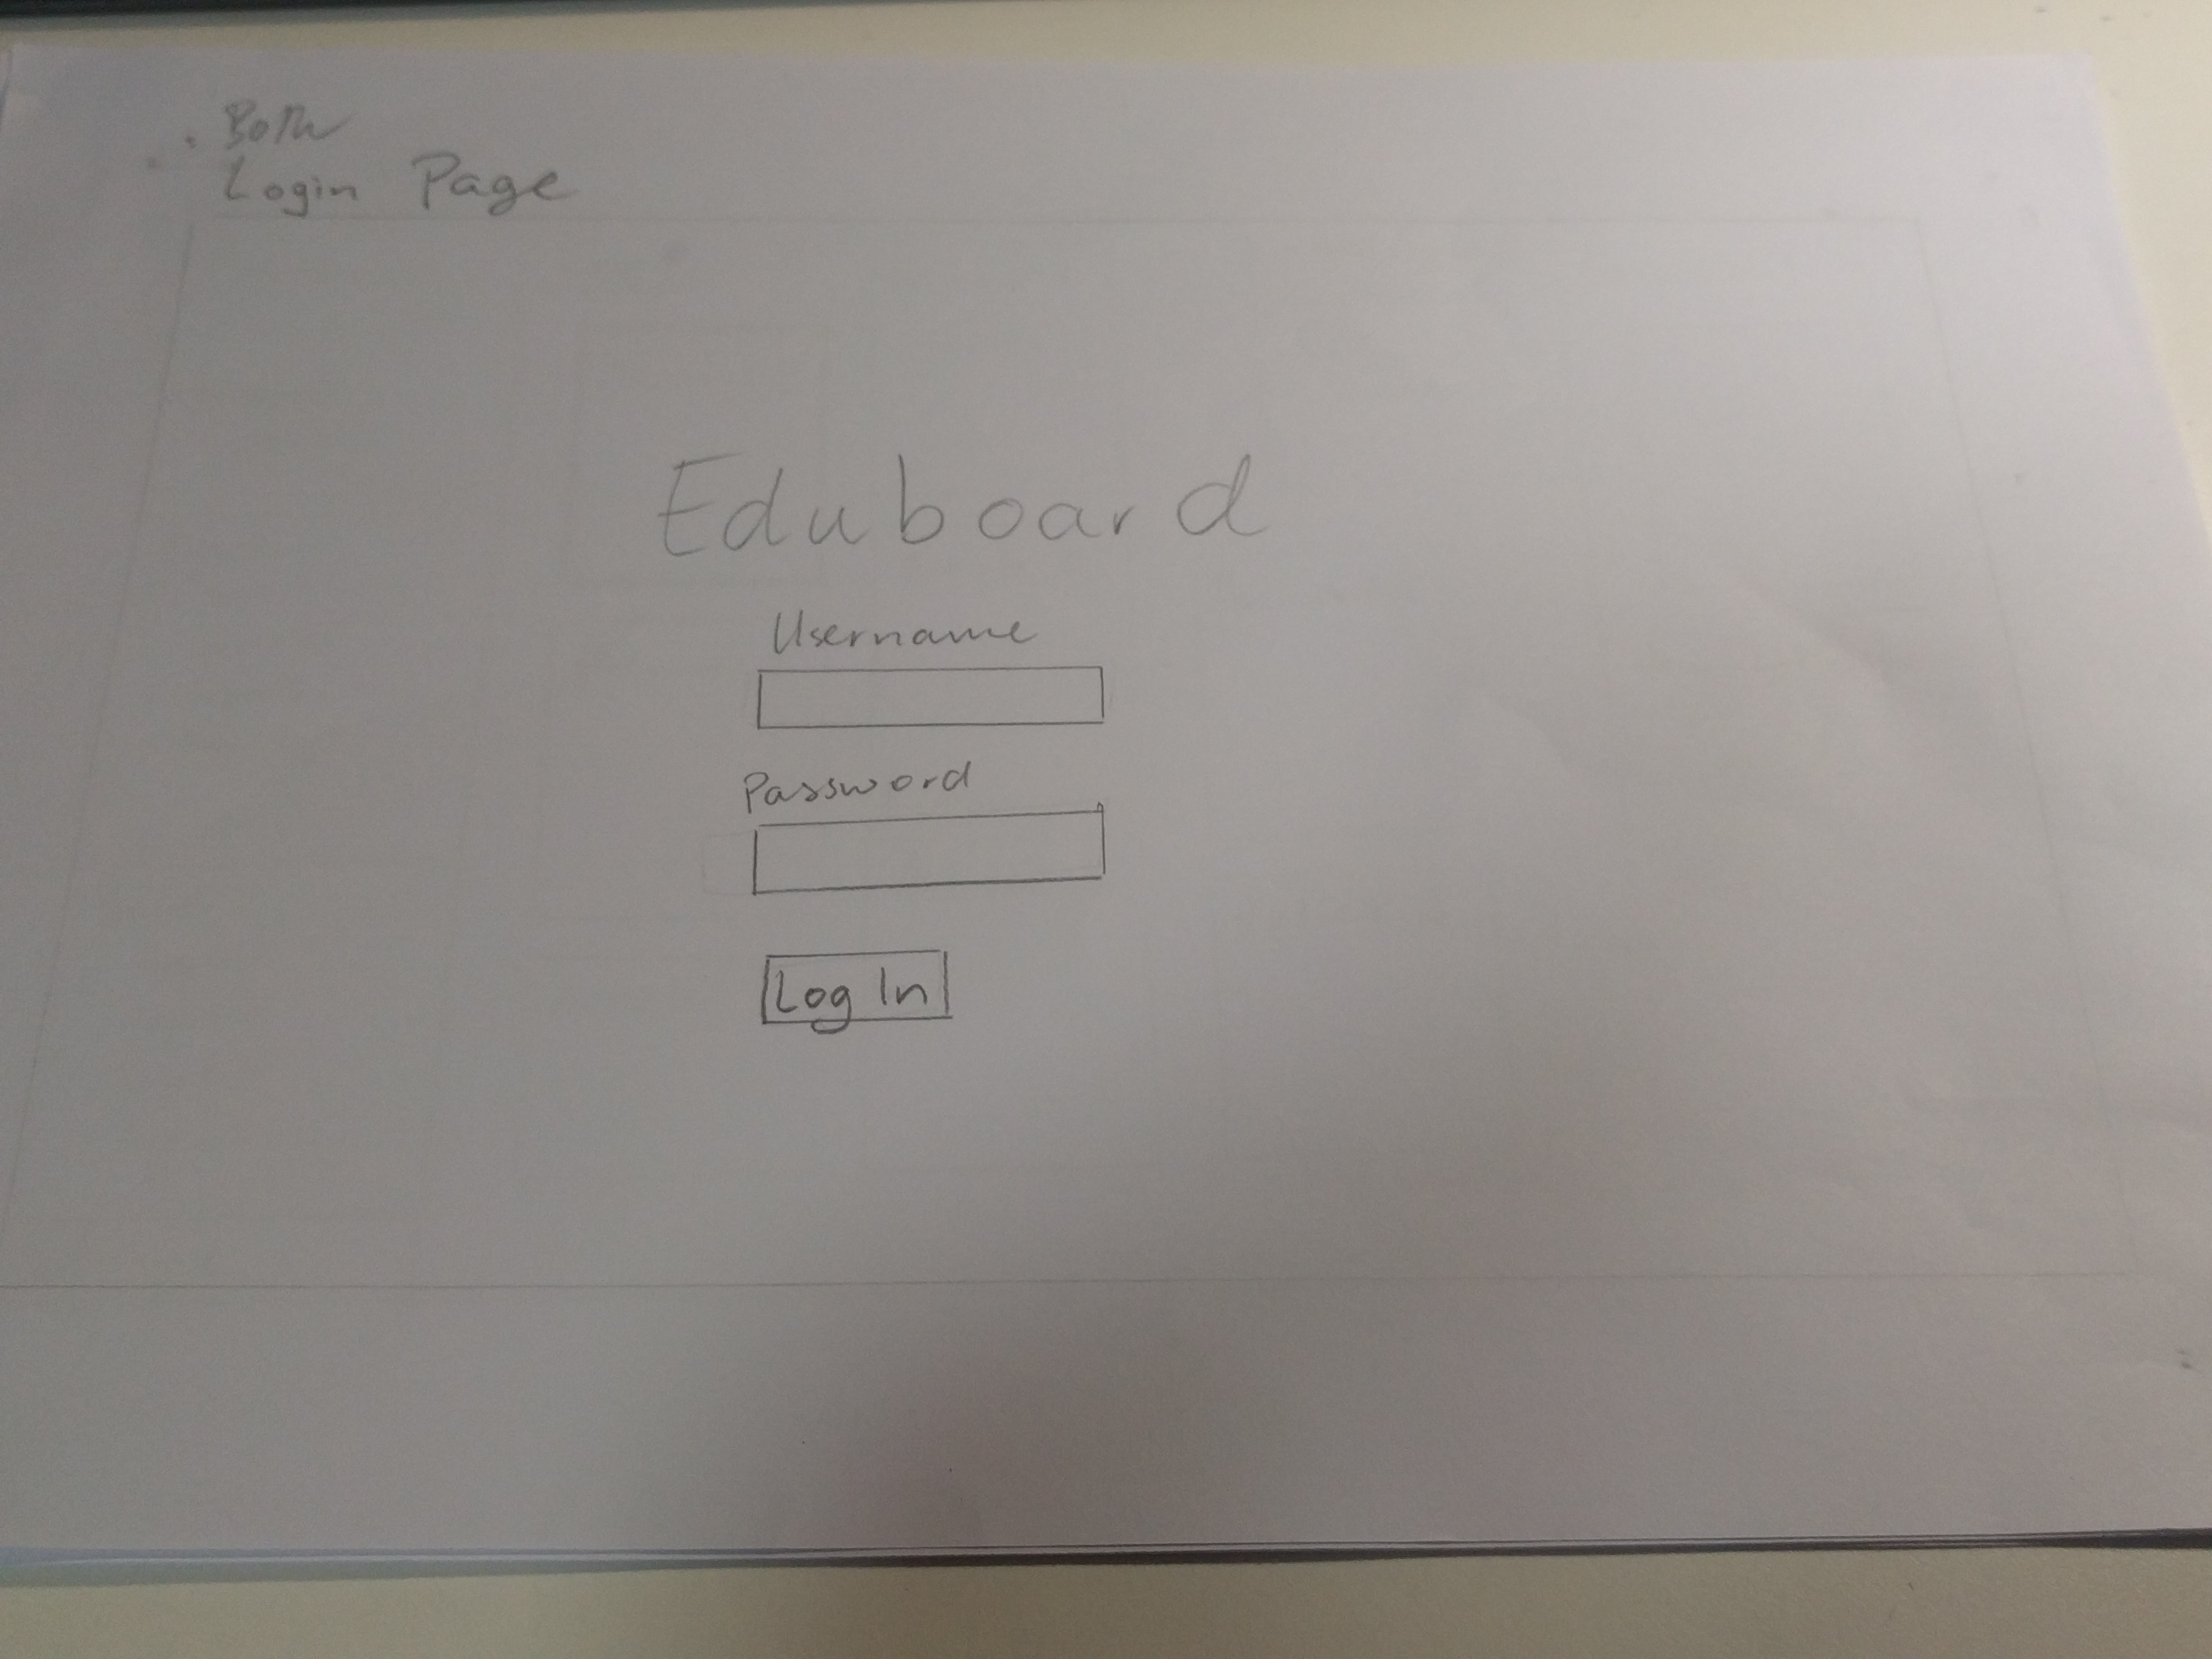 Both
Login Page
Eduboard
Username
Password
Log In